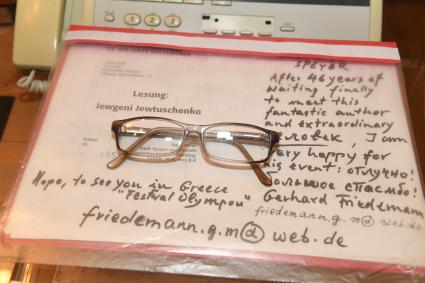 Lesung:
Jewgeni Jewtuschenko
SPEYER
After 46 years of
waiting finally
to meet this
fantastic author
and extraordinary
человек, I am
very happy for
this event: отлично!
Большое спасибо!
Gerhard Friedemann
friedemann.g.m@web.de
Hope, to see you in Greece
"Festival Olympou"
friedemann.g.m@web.de